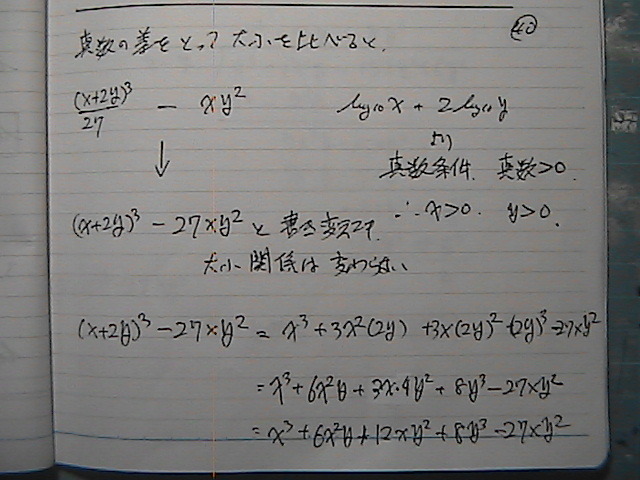 40
真数の差をとって大小を比べると、
(x+2y)³/27 - xy²
log₁₀x + 2log₁₀y
より
↓
真数条件、真数>0.
∴ x>0. y>0.
(x+2y)³ - 27xy² と書き変えても
大小関係は変わらない
(x+2y)³ - 27xy² = x³+3x²(2y) +3x(2y)²+(2y)³-27xy²
= x³+6x²y+3x・4y²+8y³-27xy²
= x³+6x²y+12xy²+8y³-27xy²